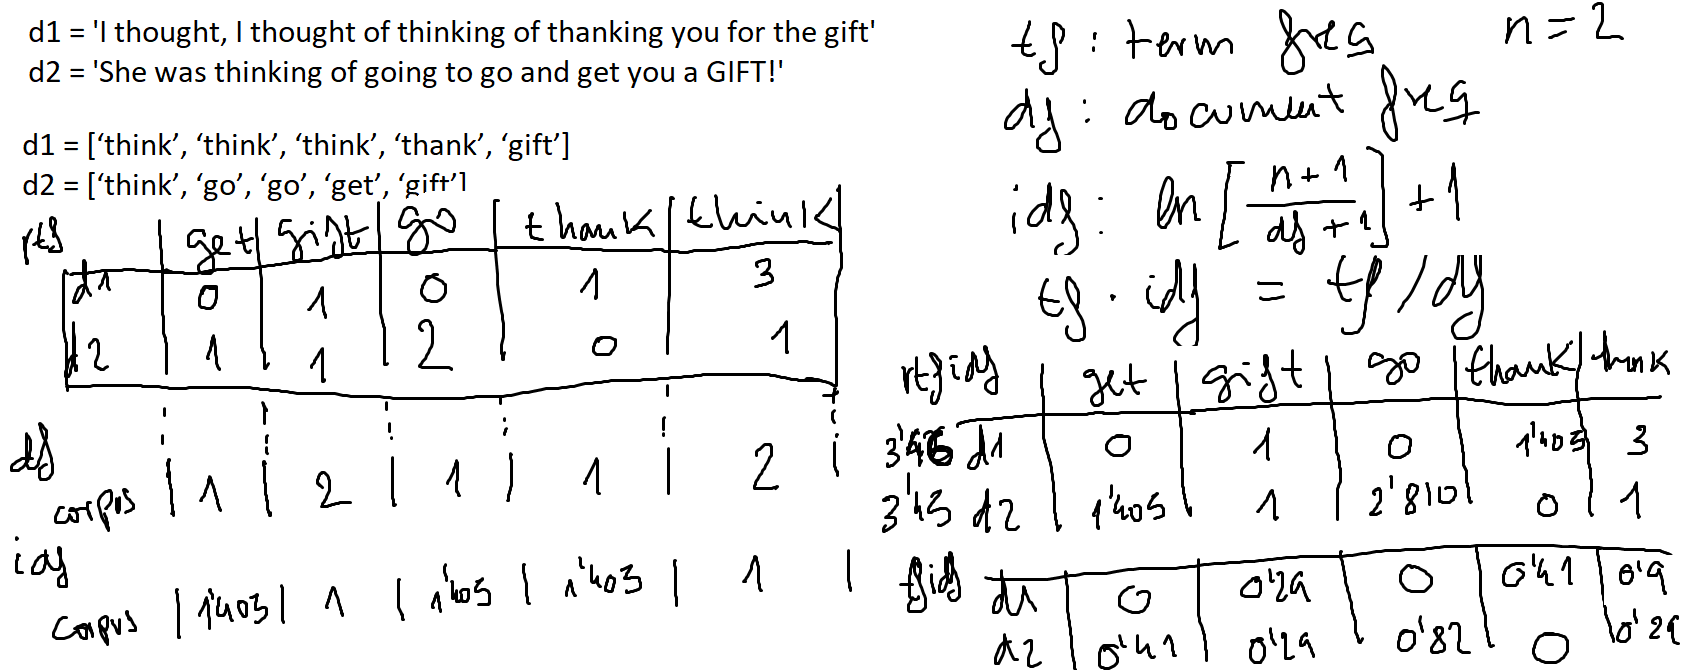 d1 = 'I thought, I thought of thinking of thanking you for the gift'
d2 = 'She was thinking of going to go and get you a GIFT!'
d1 = [‘think’, ‘think’, ‘think’, ‘thank’, ‘gift’]
d2 = [‘think’, ‘go’, ‘go’, ‘get’, ‘gift’]
rtf | get | gift | go | thank | think
d1 0 1 0 1 3
d2 1 1 2 0 1
df
corpus | 1 | 2 | 1 | 1 | 2
idf
corpus | 1'405 | 1 | 1'405 | 1'405 | 1 |
tf : term freq n = 2
df : document freq
idf : ln [ n + 1 / df + 1 ] + 1
tf · idf = tf / df
rtfidf | get | gift | go | thank | think
3'46 d1 0 1 0 1'405 3
3'45 d2 1'405 1 2'810 0 1
tfidf
d1 0 0'29 0 0'41 0'9
d2 0'41 0'29 0'82 0 0'29